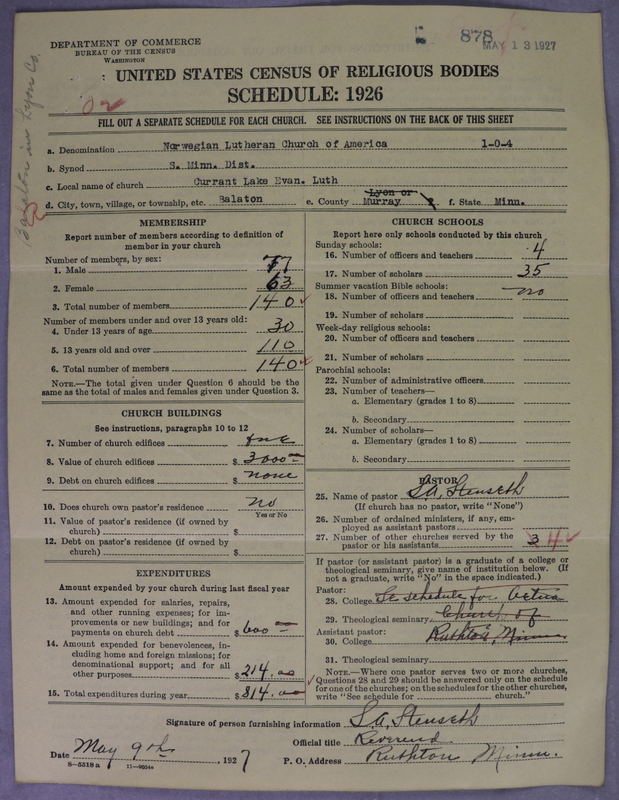 878
MAY 13 1927
DEPARTMENT OF COMMERCE
BUREAU OF THE CENSUS
WASHINGTON
UNITED STATES CENSUS OF RELIGIOUS BODIES
SCHEDULE: 1926
FILL OUT A SEPARATE SCHEDULE FOR EACH CHURCH. SEE INSTRUCTIONS ON THE BACK OF THIS SHEET
Balaton in Lyon Co.
a. Denomination Norwegian Lutheran Church of America 1-0-4
b. Synod S. Minn. Dist.
c. Local name of church Currant Lake Evan. Luth
d. City, town, village, or township, etc. Balaton e. County Lyon or Murray ? f. State Minn.
MEMBERSHIP
Report number of members according to definition of
member in your church
Number of members, by sex:
1. Male 77
2. Female 63
3. Total number of members 140
Number of members under and over 13 years old:
4. Under 13 years of age 30
5. 13 years old and over 110
6. Total number of members 140
NOTE.—The total given under Question 6 should be the
same as the total of males and females given under Question 3.
CHURCH BUILDINGS
See instructions, paragraphs 10 to 12
7. Number of church edifices one
8. Value of church edifices $ 3000
9. Debt on church edifices $ none
10. Does church own pastor's residence? no
Yes or No
11. Value of pastor's residence (if owned by
church) $
12. Debt on pastor's residence (if owned by
church) $
EXPENDITURES
Amount expended by your church during last fiscal year
13. Amount expended for salaries, repairs,
and other running expenses; for im-
provements or new buildings; and for
payments on church debt $ 600
14. Amount expended for benevolences, in-
cluding home and foreign missions; for
denominational support; and for all
other purposes $ 214.00
15. Total expenditures during year $ 814.00
CHURCH SCHOOLS
Report here only schools conducted by this church
Sunday schools:
16. Number of officers and teachers 4
17. Number of scholars 35
Summer vacation Bible schools:
18. Number of officers and teachers no
19. Number of scholars
Week-day religious schools:
20. Number of officers and teachers
21. Number of scholars
Parochial schools:
22. Number of administrative officers
23. Number of teachers—
a. Elementary (grades 1 to 8)
b. Secondary
24. Number of scholars—
a. Elementary (grades 1 to 8)
b. Secondary
PASTOR
25. Name of pastor S.A. Stenseth
(If church has no pastor, write "None")
26. Number of ordained ministers, if any, em-
ployed as assistant pastors
27. Number of other churches served by the
pastor or his assistants 3 4
If pastor (or assistant pastor) is a graduate of a college or
theological seminary, give name of institution below. (If
not a graduate, write "No" in the space indicated.)
Pastor:
28. College See schedule for
29. Theological seminary Church of
Assistant pastor:
30. College Ruthton, Minn.
31. Theological seminary
NOTE.—Where one pastor serves two or more churches,
Questions 28 and 29 should be answered only on the schedule
for one of the churches; on the schedules for the other churches,
write "See schedule for church."
Signature of person furnishing information S.A. Stenseth
Official title Reverend
Date May 9th, 1927 P. O. Address Ruthton Minn.
8-5518 a